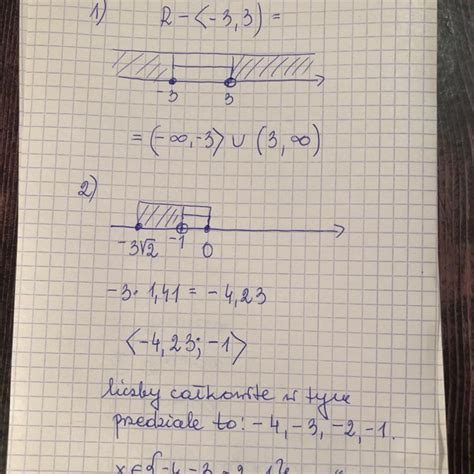 1) R - <-3,3) =
-3 3
= (-∞,-3> ∪ (3,∞)
2)
-3√2 -1 0
-3 · 1,41 = -4,23
<-4,23; -1>
liczby całkowite w tym
przedziale to: -4, -3, -2, -1.
x ∈ {-4, -3, -2, -1}